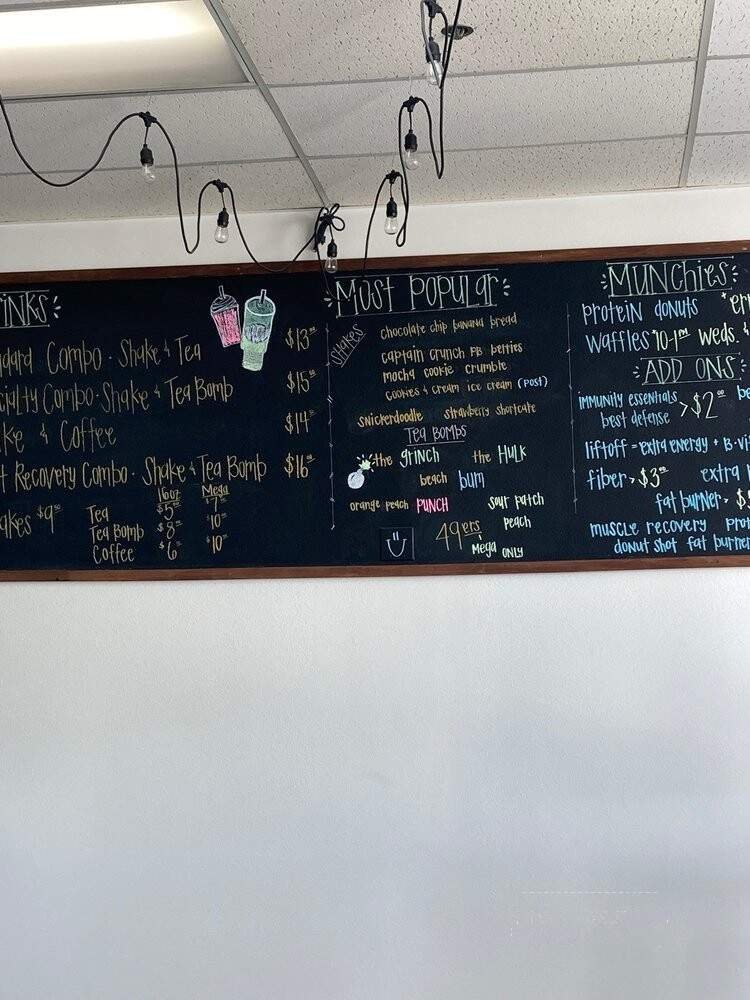 INKS
dard Combo · Shake & Tea $13
cialty Combo · Shake & Tea Bomb $15
ke & Coffee $14
t Recovery Combo · Shake & Tea Bomb $16
akes $9
16oz Mega
Tea $5 $7
Tea Bomb $8 $10
Coffee $6 $10
MOST POPULAR
SHAKES
chocolate chip banana bread
captain crunch PB berries
mocha cookie crumble
cookies & cream ice cream (POST)
snickerdoodle strawberry shortcake
TEA BOMBS
the grinch the HULK
beach bum
orange peach PUNCH sour patch
peach
49ers
Mega ONLY
MUNCHIES
protein donuts
waffles 10-1pm Weds.
ADD ONS
immunity essentials
best defense > $2
liftoff = extra energy + B-vi
fiber > $3 extra
fat burner > $
muscle recovery pro
donut shot fat burner